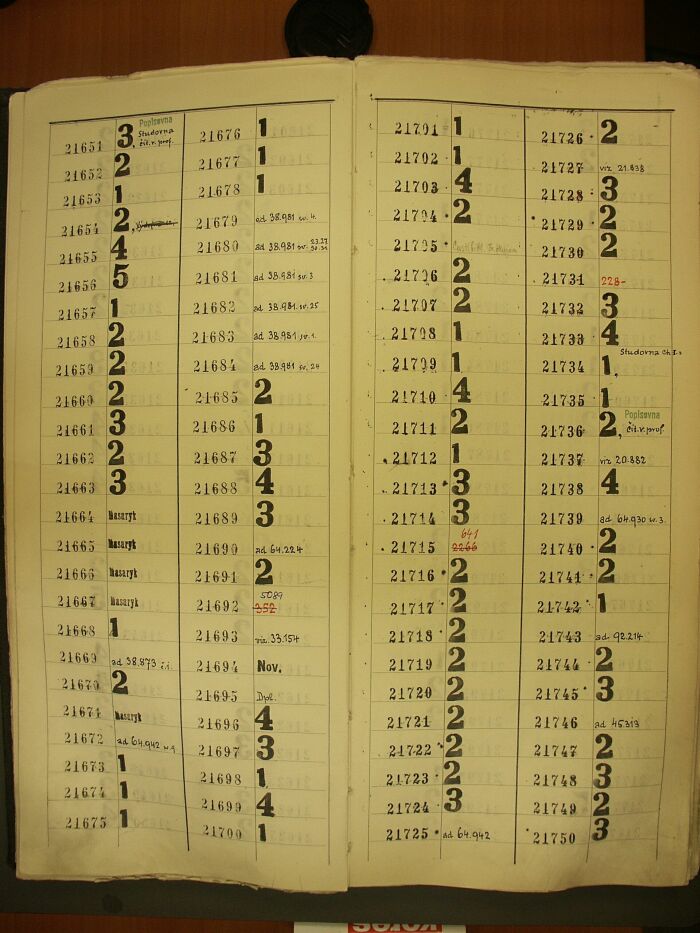 21651 3, Popisovna Studovna čít. v. prof.
21652 2
21653 1
21654 2,
21655 4
21656 5
21657 1
21658 2
21659 2
21660 2
21661 3
21662 2
21663 3
21664 Masaryk
21665 Masaryk
21666 Masaryk
21667 Masaryk
21668 1
21669 ad 38.873 i.i.
21670 2
21671 Masaryk
21672 ad 64.942 w 9
21673 1
21674 1
21675 1
21676 1
21677 1
21678 1
21679 ad 38.981 sv. 4.
21680 ad 38.981 sv. 23.27 30.31
21681 ad 38.981 sv. 3
21682 ad 38.981 sv. 25
21683 ad 38.981 sv. 1.
21684 ad 38.981 sv. 24
21685 2
21686 1
21687 3
21688 4
21689 3
21690 ad 64.224
21691 2
21692 5089 352
21693 viz. 33.154
21694 Nov.
21695 Dpl.
21696 4
21697 3
21698 1
21699 4
21700 1
21701 1
21702 1
21703 4
21704 2
21705
21706 2
21707 2
21708 1
21709 1
21710 4
21711 2
21712 1
21713 3
21714 3
21715 641 2266
21716 2
21717 2
21718 2
21719 2
21720 2
21721 2
21722 2
21723 2
21724 3
21725 ad 64.942
21726 2
21727 viz 21.838
21728 3
21729 2
21730 2
21731 228-
21732 3
21733 4
21734 1, Studovna Ch.I.
21735 1
21736 2, Popisovna čít. v. prof.
21737 viz 20.882
21738 4
21739 ad 64.930 w. 3.
21740 2
21741 2
21742 1
21743 ad 92.214
21744 2
21745 3
21746 ad 45313
21747 2
21748 3
21749 2
21750 3